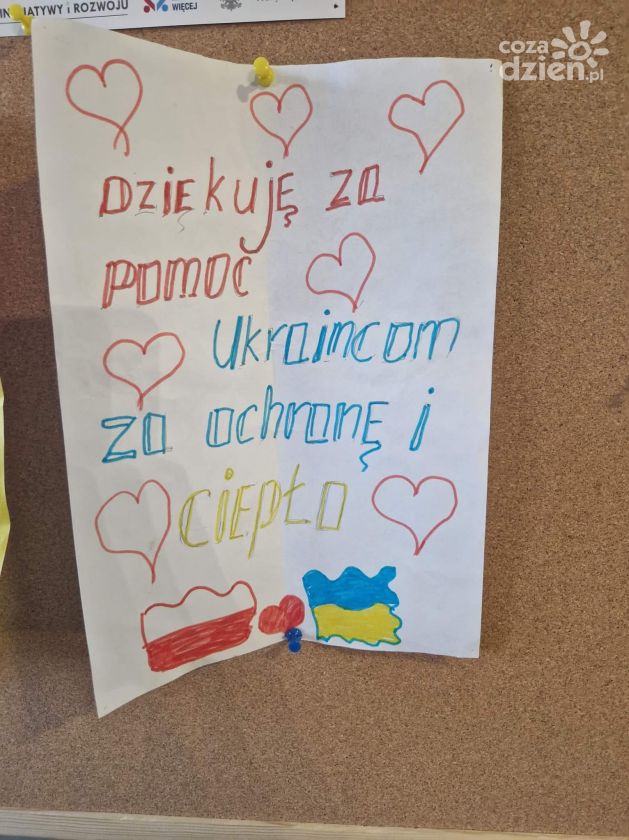 INICJATYWY i ROZWOJU
WIĘCEJ
coza
dzień.pl
Dziękuję za
pomoc
Ukraincom
za ochronę i
ciepło